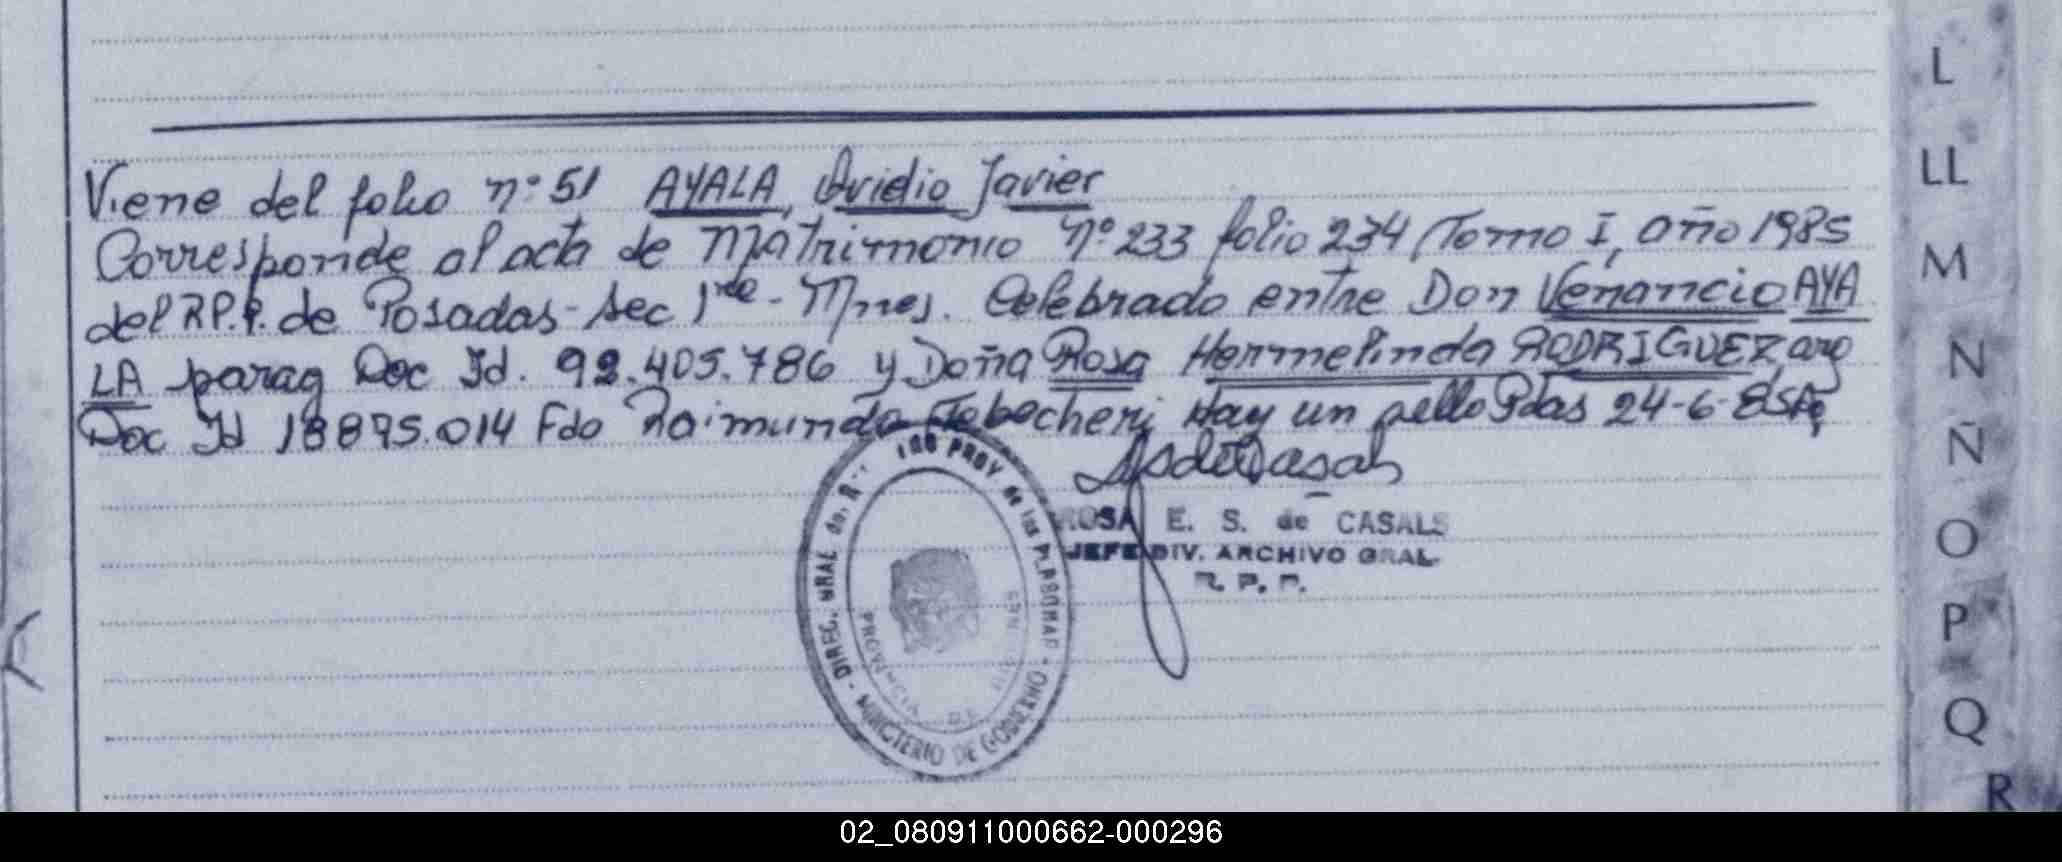 Viene del folio nº 51 AYALA, Ovidio Javier
Corresponde al acta de Matrimonio Nº 233 folio 234, Tomo I, año 1985
del R.P.P. de Posadas - Sec 1ra - Mnes. Celebrado entre Don Venancio AYA
LA parag Doc Id. 92.405.786 y Doña Rosa Hermelinda RODRIGUEZ arg
Doc Id 18875.014 Fdo Raimundo Hay un sello Pdas 24-6-85
ROSA E. S. de CASALS
JEFE DIV. ARCHIVO GRAL.
R. P. P.
DIREC. GRAL del PROV de las PERSONAS - MINISTERIO DE GOBIERNO
PROVINCIA DE MISIONES
L
LL
M
N
Ñ
O
P
Q
R
02_080911000662-000296